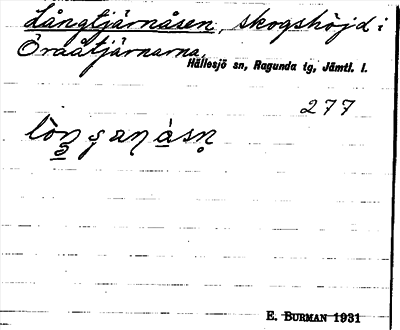 Långtjärnåsen, skogshöjd i
Öraåtjärnarna
Hällesjö sn, Ragunda tg, Jämtl. l.
277
E. BURMAN 1931